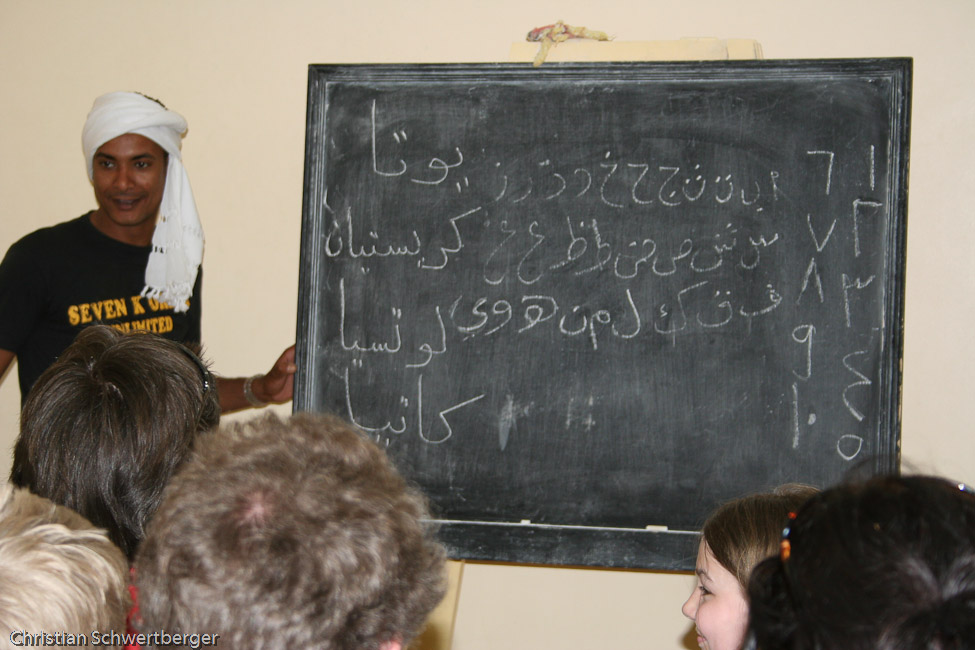 SEVEN K
UNLIMITED
١ ٦
٢ ٧
٣ ٨
٤ ٩
٥ ١٠
ب ت ث ج ح خ د ذ ر ز
س ش ص ض ط ظ ع غ
ف ق ك ل م ن ه و ي
يوتا
كريستيان
لوتسيا
كاتيا
Christian Schwertberger